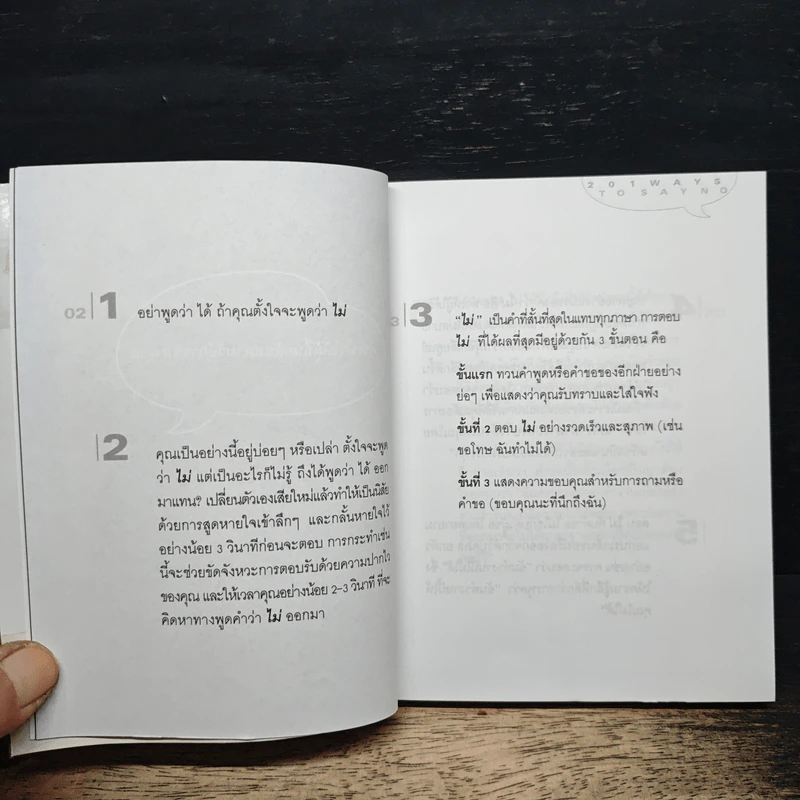 02
1
อย่าพูดว่า ได้ ถ้าคุณตั้งใจจะพูดว่า ไม่
2
คุณเป็นอย่างนี้อยู่บ่อยๆ หรือเปล่า ตั้งใจจะพูด
ว่า ไม่ แต่เป็นอะไรก็ไม่รู้ ถึงได้พูดว่า ได้ ออก
มาแทน? เปลี่ยนตัวเองเสียใหม่แล้วทำให้เป็นนิสัย
ด้วยการสูดหายใจเข้าลึกๆ และกลั้นหายใจไว้
อย่างน้อย 3 วินาทีก่อนจะตอบ การกระทำเช่น
นี้จะช่วยขัดจังหวะการตอบรับด้วยความปากไว
ของคุณ และให้เวลาคุณอย่างน้อย 2-3 วินาที ที่จะ
คิดหาทางพูดคำว่า ไม่ ออกมา
201WAYS
TOSAYNO
3
3
“ไม่” เป็นคำที่สั้นที่สุดในแทบทุกภาษา การตอบ
ไม่ ที่ได้ผลที่สุดมีอยู่ด้วยกัน 3 ขั้นตอน คือ
ขั้นแรก ทวนคำพูดหรือคำขอของอีกฝ่ายอย่าง
ย่อๆ เพื่อแสดงว่าคุณรับทราบและใส่ใจฟัง
ขั้นที่ 2 ตอบ ไม่ อย่างรวดเร็วและสุภาพ (เช่น
ขอโทษ ฉันทำไม่ได้)
ขั้นที่ 3 แสดงความขอบคุณสำหรับการถามหรือ
คำขอ (ขอบคุณนะที่นึกถึงฉัน)